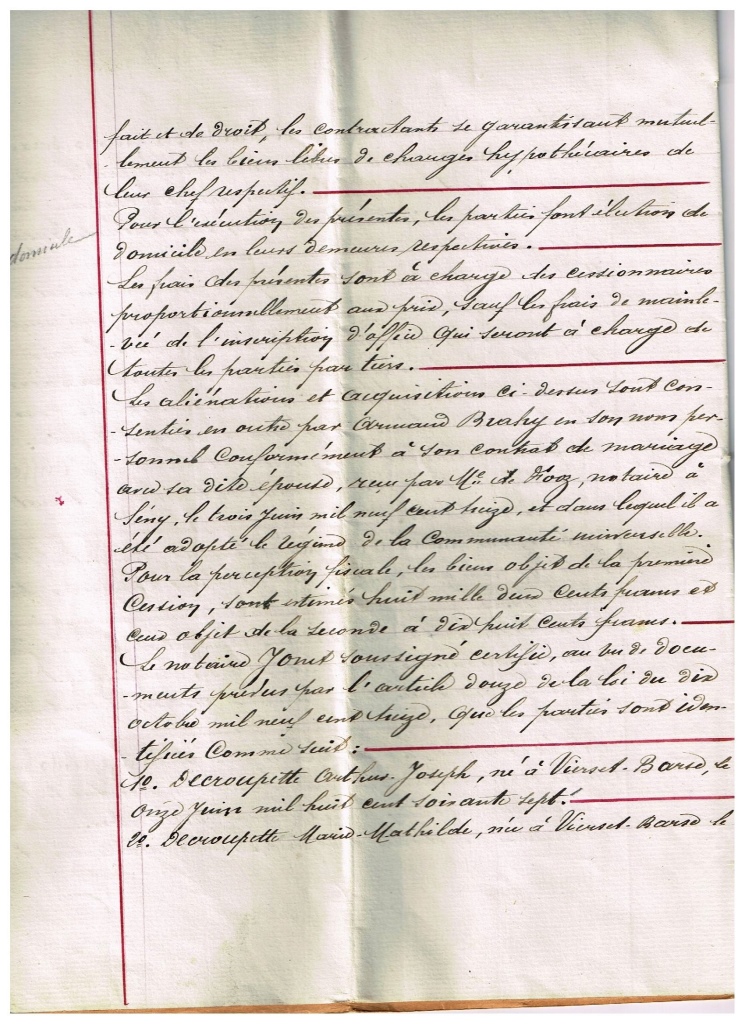 fait et de droit, les contractants se garantissant mutuel-
-lement les biens libres de charges hypothécaires de
leur chef respectif.
Pour l'exécution des présentes, les parties font élection de
domicile
domicile en leurs demeures respectives.
Les frais des présentes sont à charge des cessionnaires
proportionnellement aux prix, sauf les frais de mainle-
-vée de l'inscription d'office qui seront à charge de
toutes les parties par tiers.
Les aliénations et acquisitions ci-dessus sont con-
-senties en outre par Armand Brahy en son nom per-
-sonnel conformément à son contrat de mariage
avec sa dite épouse, reçu par Me de Fooz, notaire à
Sény, le trois juin mil neuf cent treize, et dans lequel il a
été adopté le régime de la communauté universelle.
Pour la perception fiscale, les biens objet de la première
cession, sont estimés huit mille deux cents francs et
ceux objet de la seconde à dix huit cents francs.
Le notaire Jonet soussigné certifie, au vu de docu-
-ments prévus par l'article douze de la loi du dix
octobre mil neuf cent treize, que les parties sont iden-
-tifiées comme suit:
1o. Decroupette Arthur-Joseph, né à Vierset-Barse, le
onze juin mil huit cent soixante sept.
2o. Decroupette Marie-Mathilde, née à Vierset-Barse le